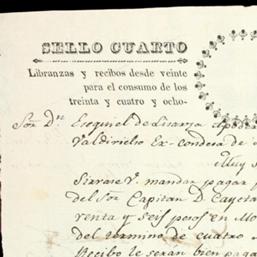 SELLO CUARTO
Libranzas y recibos desde veinte
para el consumo de los
treinta y cuatro y ocho-
Sor Dn Ezequiel de Lizarza Apode
Valdivielso Ex-condesa de
Muy s
Sirvase V. mandar pagar
del Sor Capitan D. Cayeta
renta y seis pesos en Mo
del termino de cuatro
Recibo le seran bien paga